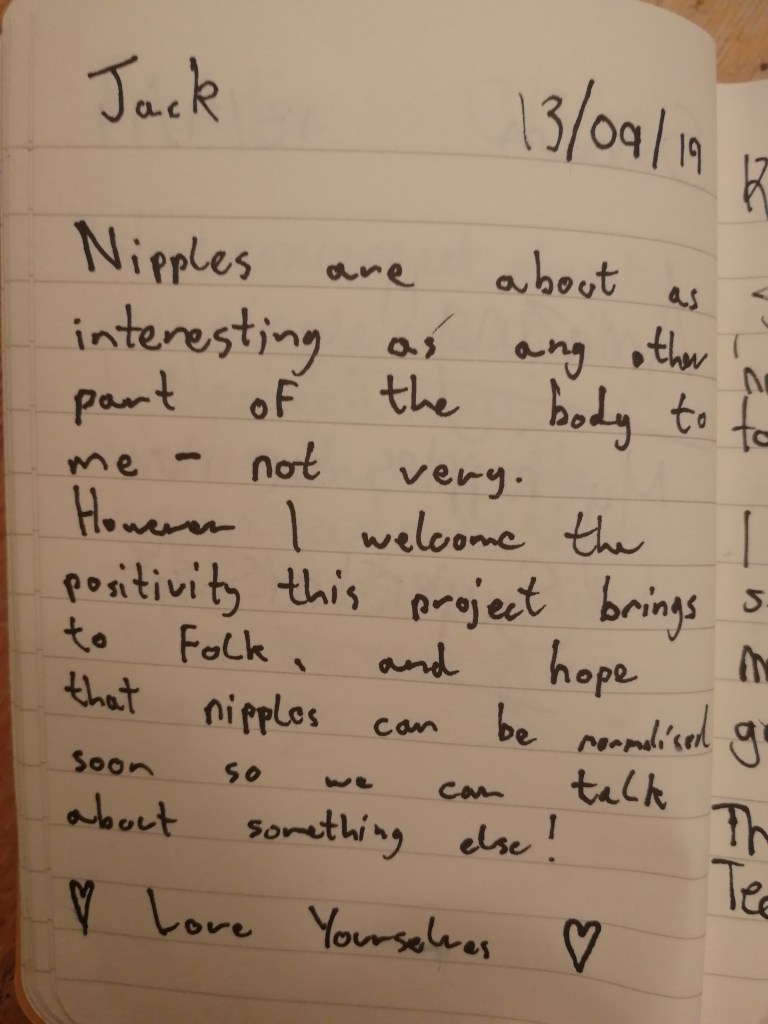 Jack
13/09/19
Nipples are about as
interesting as any other
part of the body to
me - not very.
However I welcome the
positivity this project brings
to Folk, and hope
that nipples can be normalised
soon so we can talk
about something else!
♡ Love Yourselves ♡